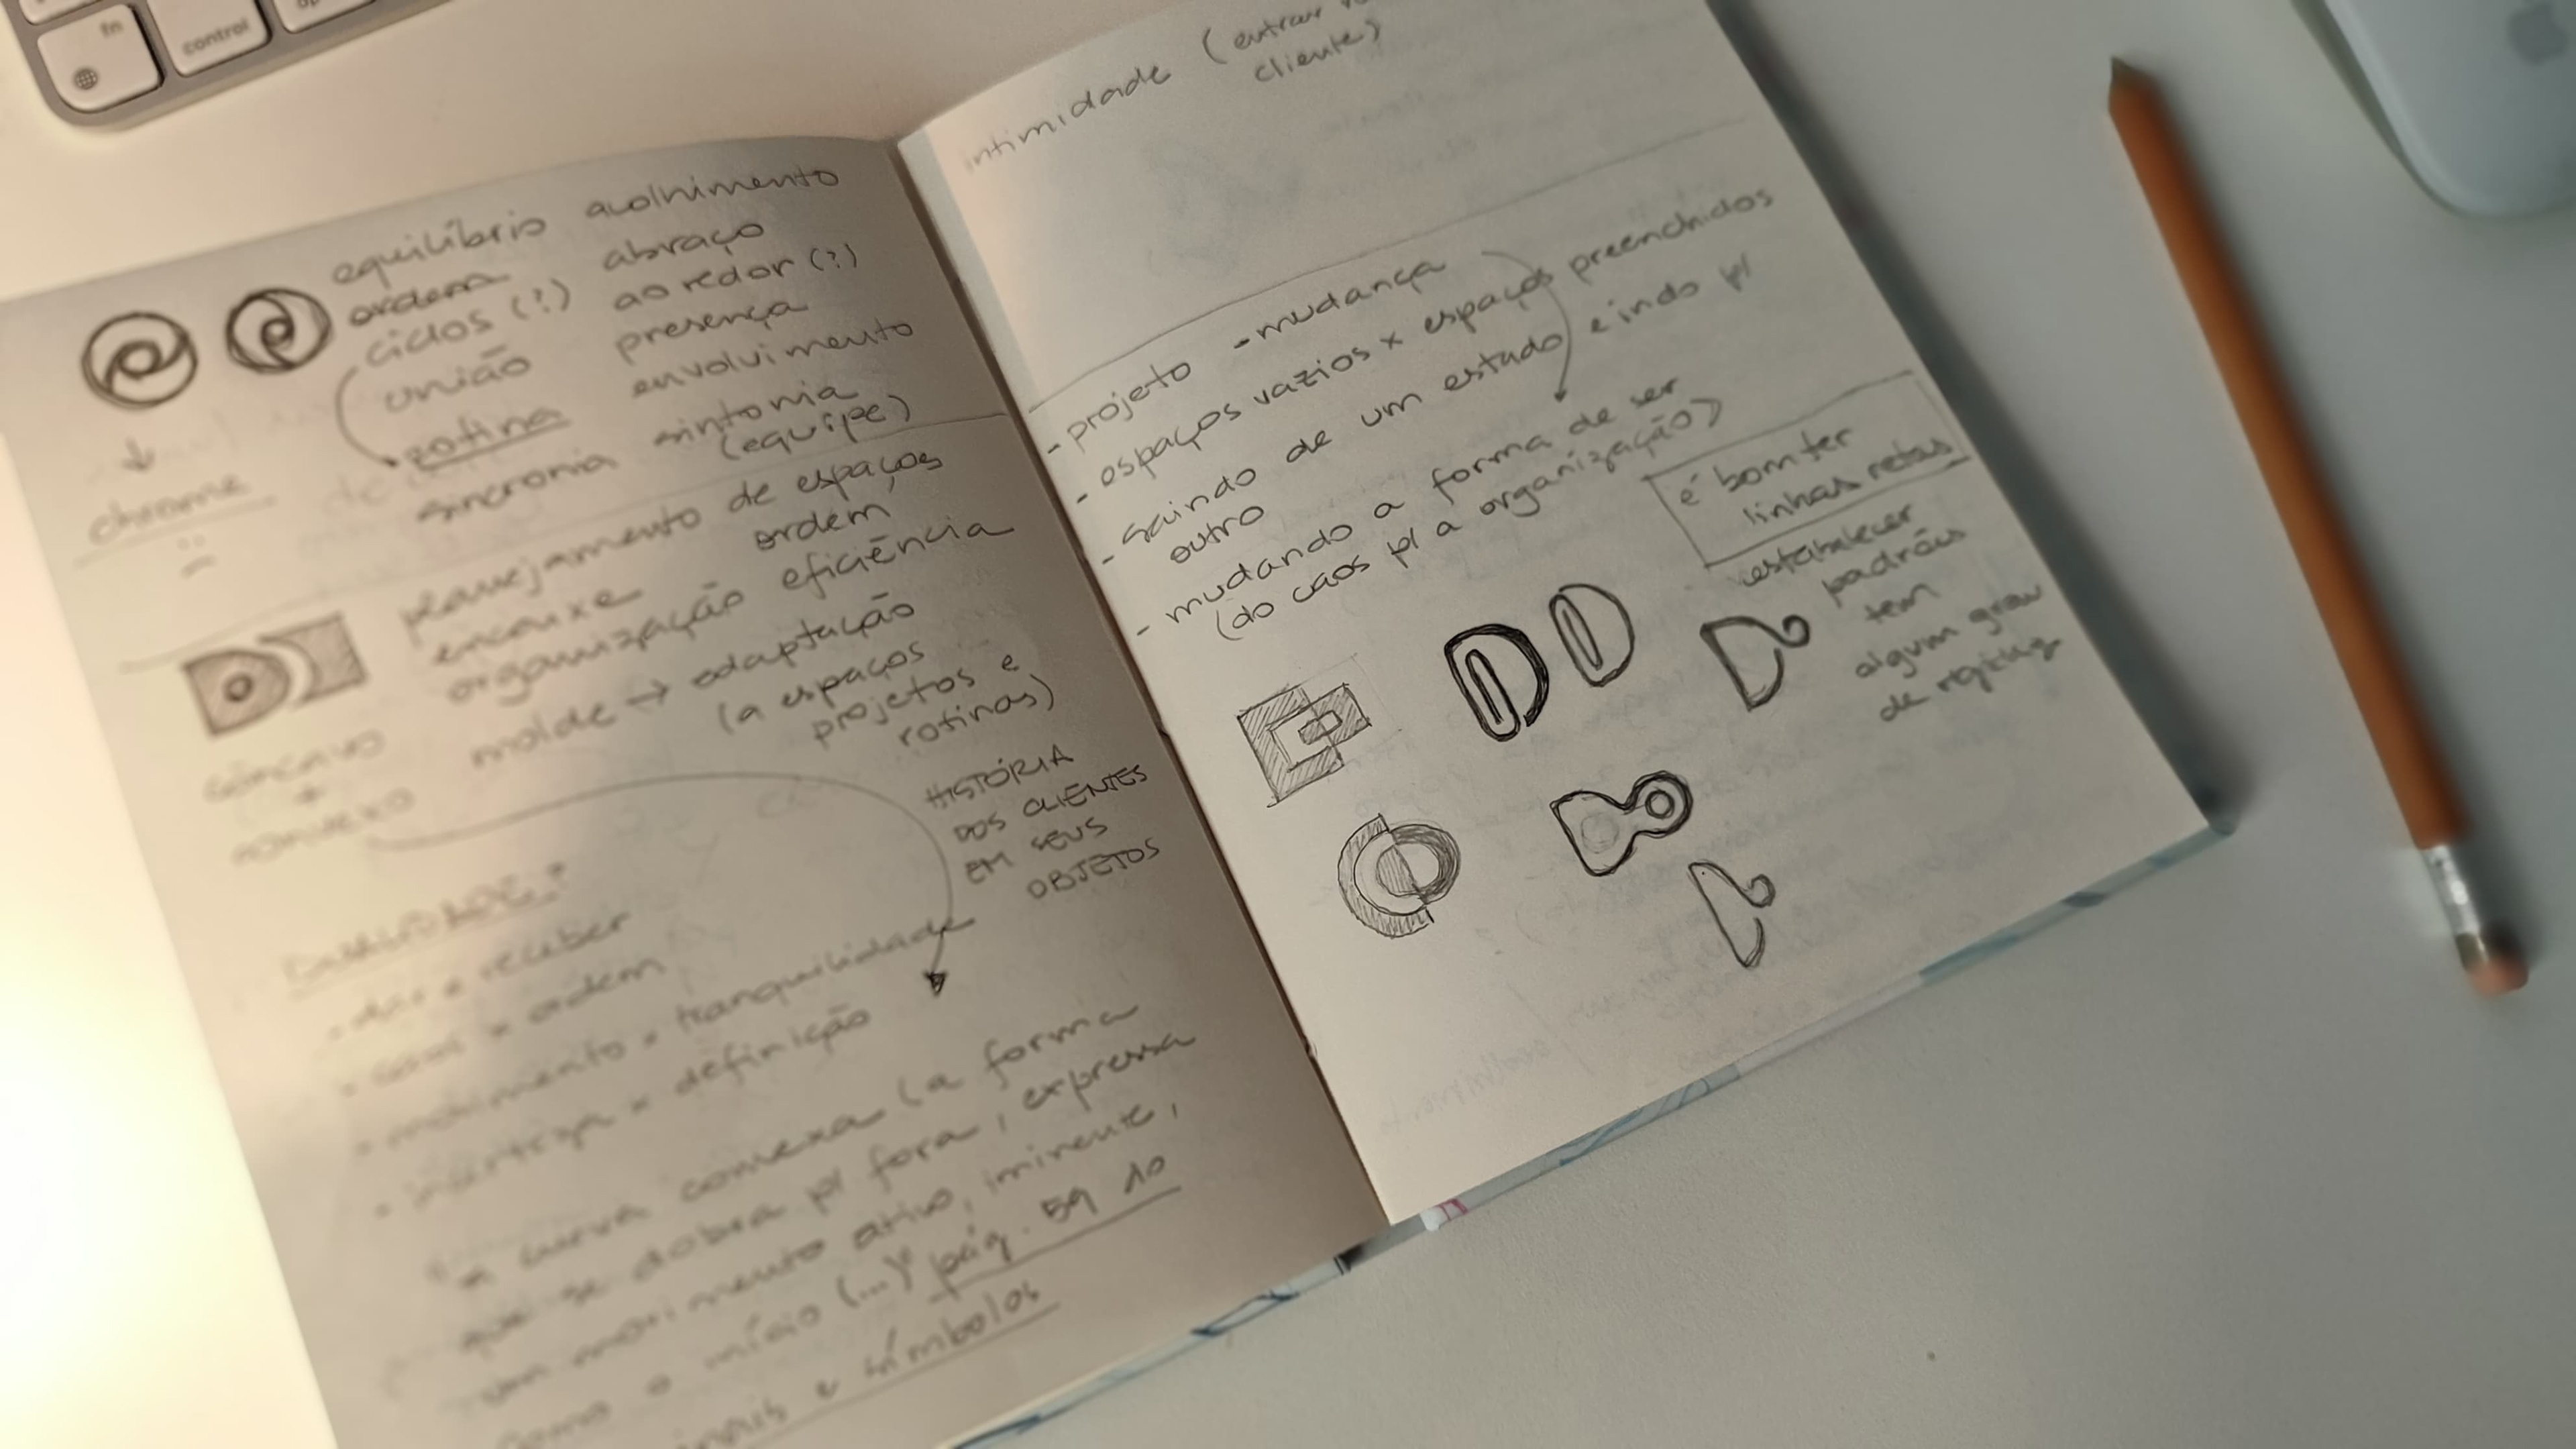 fn
control
equilíbrio acolhimento
ordem abraço
ciclos (?) ao redor (?)
união presença
rotina envolvimento
sincronia sintonia
(equipe)
chrome
:(
planejamento de espaços
encaixe ordem
organização eficiência
molde → adaptação
(a espaços
projetos e
rotinas)
côncavo
+
convexo
HISTÓRIA
DOS CLIENTES
EM SEUS
OBJETOS
DUALIDADE?
• dar e receber
• caos × ordem
• movimento × tranquilidade
• incerteza × definição
"A curva convexa (a forma
que se dobra p/ fora, expressa
um movimento ativo, iminente,
como o início (...)" pág. 59 10
e símbolos
intimidade (entrar
cliente)
- projeto - mudança
- espaços vazios x espaços preenchidos
- saindo de um estado e indo p/
outro
- mudando a forma de ser
(do caos p/ a organização)
é bom ter
linhas retas
estabelecer
padrões
tem
algum grau
de rigidez